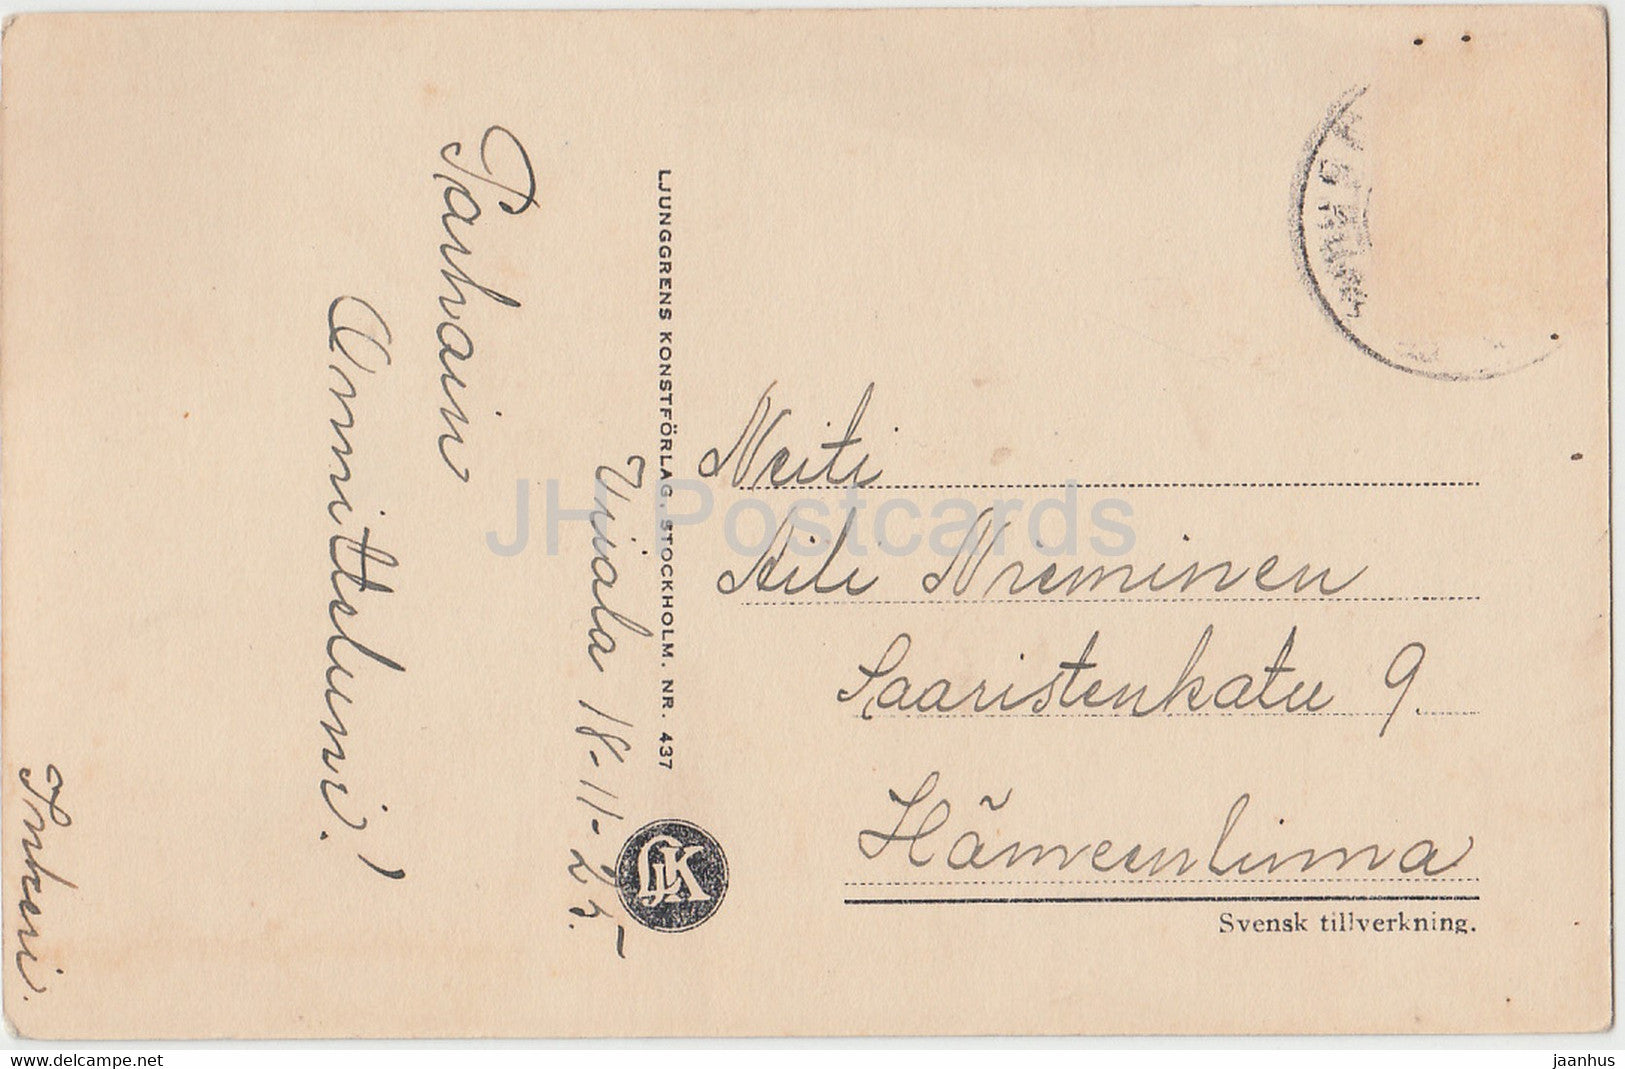 Viiala 18-11-25.
Parhain
Onnitteluni!
Inkeri.
LJUNGGRENS KONSTFÖRLAG, STOCKHOLM. NR. 437
LJK
Neiti
Aili Nieminen
Saaristenkatu 9.
Hämeenlinna
Svensk tillverkning.
JH Postcards
www.delcampe.net
jaanhus